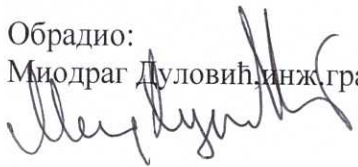 Обрадио:
Миодраг Дуловић.инж.гра